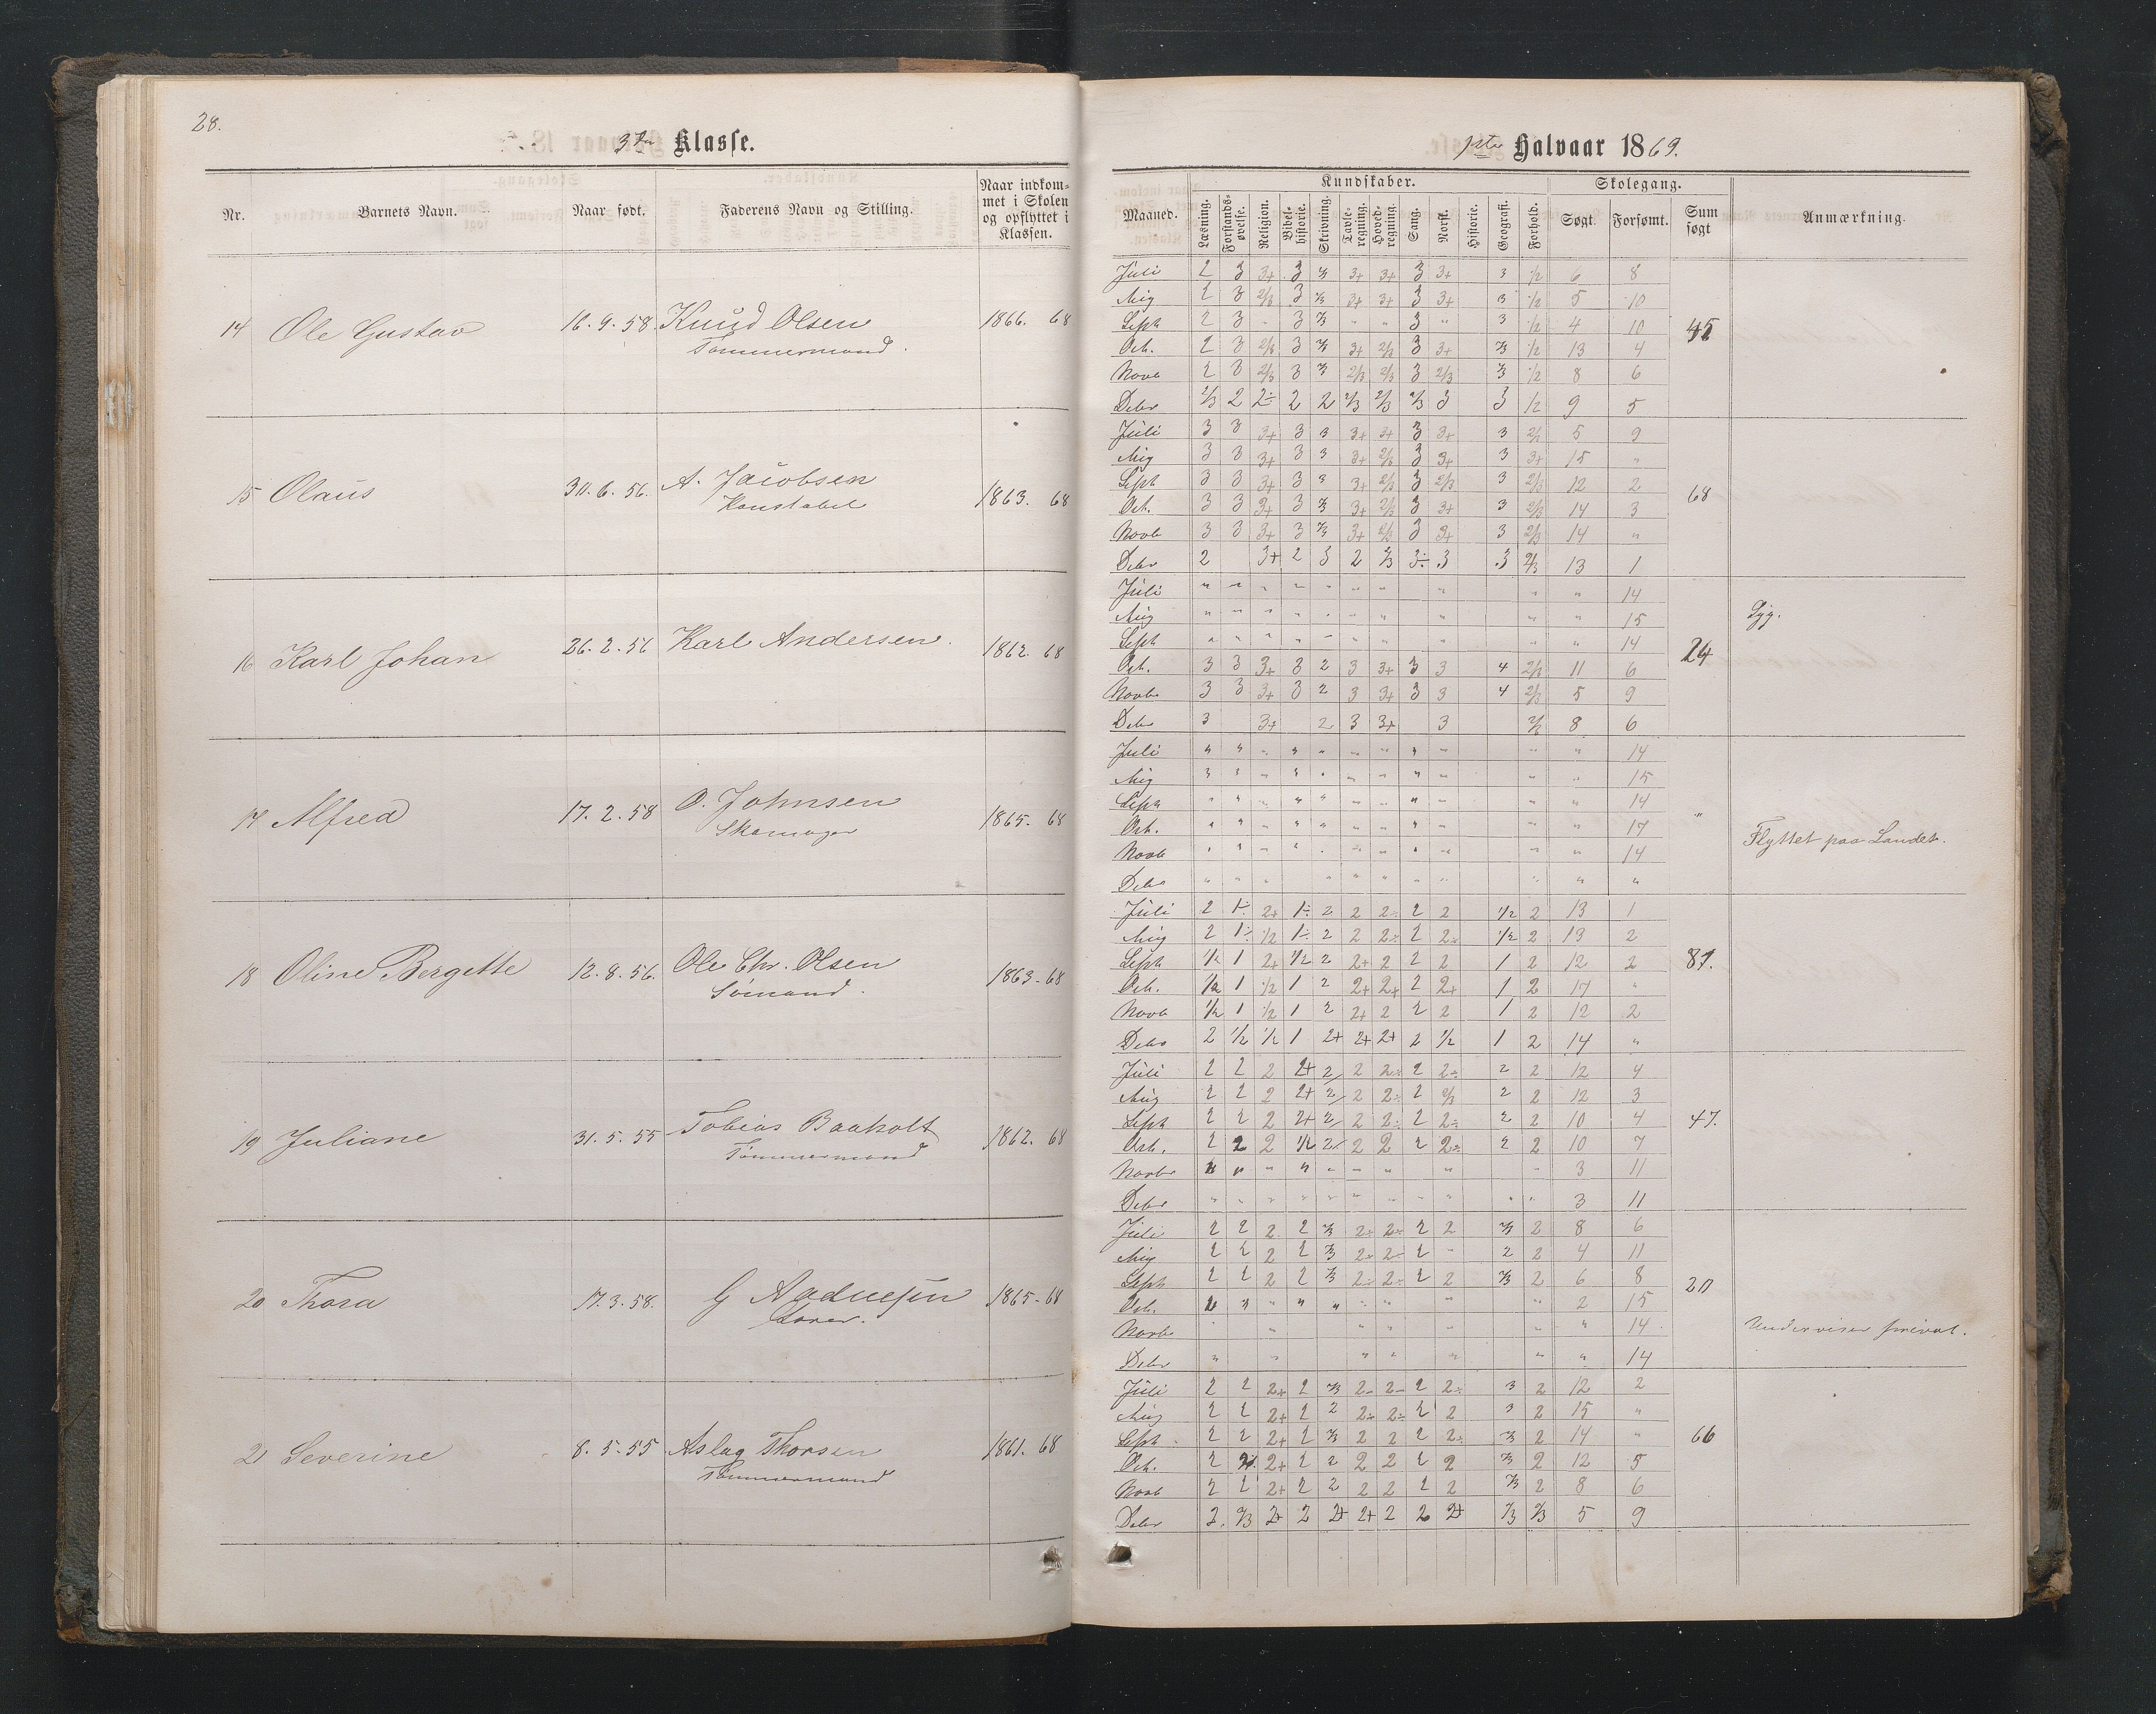 28.
3die Klasse.
Nr. Barnets Navn. Naar født. Faderens Navn og Stilling. Naar indkommet i Skolen og opflyttet i Klassen.
14 Ole Gustav 16. 9. 58. Knud Olsen 1866. 68
Tømmermand.
15 Olaus 30. 6. 56. A. Jacobsen 1863. 68
Konstabel
16 Karl Johan 26. 2. 56 Karl Andersen. 1862. 68
17 Alfred 17. 2. 58 O. Johnsen 1865. 68
Skomager
18 Oline Bergette 12. 8. 56. Ole Chr. Olsen 1863-68
Sømand.
19 Juliane 31. 5. 55 Tobias Baaholt 1862. 68
Tømmermand
20 Thora 17. 3. 58. G 1865-68
21 Severine 8. 5. 55 Aslag Thorsen 1861. 68
Tømmermand
1ste Halvaar 1869.
Maaned. Kundskaber. Skolegang. Sum søgt Anmærkning.
Læsning. Forstandsøvelse. Religion. Bibelhistorie. Skrivning. Tavleregning. Hovedregning. Sang. Norsk. Historie. Geografi. Forhold. Søgt. Forsømt.
Juli 2 3 3+ 3 2/3 3+ 3+ 3 3+ 3 1/2 6 8
Aug 2 3 2/3 3 2/3 3+ 3+ 3 3+ 3 1/2 5 10
Sept 2 3 " 3 2/3 " " 3 " 3 1/2 4 10
45
Oct. 2 3 2/3 3 2/3 3+ 2/3 3 3+ 2/3 1/2 13 4
Novb 2 3 2/3 3 2/3 2/3 2/3 3 2/3 2/3 1/2 8 6
Debr 2/3 2 2÷ 2 2 2/3 2/3 2/3 3 3 1/2 9 5
Juli 3 3 3+ 3 3 3+ 3+ 3 3+ 3 2/3 5 9
Aug 3 3 3+ 3 3 3+ 2/3 3 3+ 3 3+ 15 "
Sept 3 3 3+ 3 3 3+ 2/3 3 2/3 3 2/3 12 2
68
Oct. 3 3 3+ 3 2/3 3+ 2/3 3 3+ 3 2/3 14 3
Novb 3 3 3+ 3 2/3 3+ 2/3 3 3+ 3 2/3 14 "
Debr 2 3+ 2 3 2 2/3 3÷ 3 3 2/3 13 1
Juli " " " " " " " " " " 14
Aug " " " " " " " " " " 15
Syg.
Sept " " " " " " " " " " 14
24
Oct. 3 3 3+ 3 2 3 3+ 3 3 4 2/3 11 6
Novbr 3 3 3+ 3 2 3 3+ 3 3 4 2/3 5 9
Debr 3 3+ 2 3 3+ 3 2/3 8 6
Juli " " " " " " " " " " " 14
Aug " " " " " " " " " " " 15
Sept " " " " " " " " " " " 14
"
Oct. " " " " " " " " " " " 17
Flyttet paa Landet.
Novb " " " " " " " " " " " 14
Debr " " " " " " " " " " "
Juli 2 1÷ 2+ 1÷ 2 2 2÷ 2 2 1/2 2 13 1
Aug 2 1÷ 1/2 1÷ 2 2 2÷ 2 2÷ 1/2 2 13 2
Sept 1/2 1 2+ 1/2 2 2+ 2 2 2 1 2 12 2
81.
Oct. 1/2 1 1/2 1 2 2+ 2+ 2 2+ 1 2 17 "
Novb 1/2 1 1/2 1 2 2+ 2 2 2 1 2 12 2
Debr 2 1/2 1/2 1 2+ 2+ 2+ 2 1/2 1 2 14 "
Juli 2 2 2 2+ 2 2 2÷ 2 2÷ 2 2 12 4
Aug 2 2 2 2+ 2 2 2÷ 2 2/3 2 2 12 3
Sept 2 2 2 2+ 2 2 2÷ 2 2÷ 2 2 10 4
47.
Oct. 2 2 2 1/2 2 2 2 2 2÷ 2 2 10 7
Novbr " " " " " " " " " 3 11
Debr " " " " " " " " " " " 3 11
Juli 2 2 2 2 2/3 2÷ 2÷ 2 2 2/3 2 8 6
Aug 2 2 2 2 2/3 2÷ 2÷ 2 " 2 2 4 11
Sept 2 2 2 2 2/3 2÷ 2÷ 2 2 2/3 2 6 8
20
Oct. " " " " " " " " " 2 15
Novb " " " " " " 14
Underviser privat.
Debr " " " " " " " 14
Juli 2 2 2+ 2 2/3 2÷ 2÷ 2 2÷ 3 2 12 2
Aug 2 2 2+ 2 2 2÷ 2÷ 2 2 3 2 15 "
Sept 2 2 2+ 2 2/3 2 2 2 2÷ 2/3 2 14 "
66
Oct. 2 2 2+ 2 2 2 2 2 2 2/3 2 12 5
Novb 2 2 2+ 2 2 2 2 2 2 2/3 2 8 6
Debr 2 2/3 2+ 2 2+ 2+ 2 2 2+ 2/3 2/3 5 9